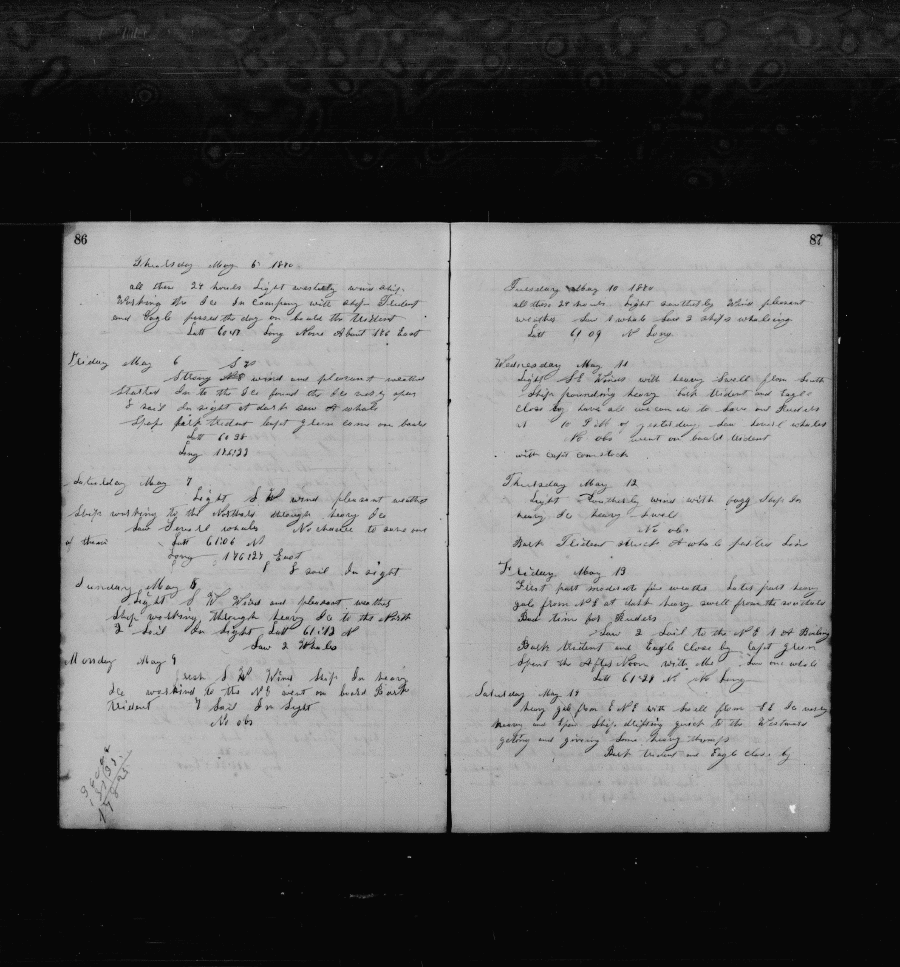 86
Thursday May 5 1880
all thes 24 hours Light westerly wind ship
Working the Ice In Company with ship Trident
and Eagle passed the day on board the Trident
Latt 60:47 Long None About 176 East
Friday May 6 S W
Strong wind and pleasant weather
Started In to the Ice found the Ice very open
8 sail In sight at dark saw A whale
Spoke Bark Trident Capt Green came on board
Latt 60 38
Long 176:23
Saturday May 7
Light S W wind pleasant weather
Ship working to the Northard through heavy Ice
Saw Severl whales No chance to save one
of them Latt 61:06 N
Long 176:27 East
8 sail In sight
Sunday May 8
Light S W Wind and pleasant weather
Ship working through heavy Ice to the North
2 Sail In Sight Latt 61:13 N
Saw 2 Whales
Monday May 9
Fresh S W Wind Ship In heavy
Ice working to the NE went on board Bark
Trident 7 Sail In Sight
No obs
87
Tuesday May 10 1880
all these 24 hours Light southerly Wind pleasant
weather Saw 1 whale Saw 2 ships whaleing
Latt 61 09 N Long
Wednesday May 11
Light SE Winds with heavy Swell from South
Ship pounding heavy Bark Trident and Eagle
Close by have all we can do to save our Rudders
at 10 P.M of yesterday Saw severl whales
No obs went on board Trident
with Capt Comstock
Thursday May 12
Light Southerly wind with fogg Ship In
heavy Ice heavy Swell
No obs
Bark Trident struck A whale
Friday May 13
First part moderate fir weather Later part heavy
gale from NE at dark heavy swell from the southard
Bad time for Rudders
Saw 2 Sail to the N E 1 of Boiling
Bark Trident and Eagle Close by Capt Green
Spent the After Noon with Me Saw one whale
Latt 61:24 N No Long
Saturday May 14
heavy gale from E N E with Swell from SE Ice very
heavy and open Ship drifting quick to the Westward
geting and giving Some heavy thumps
Bark Trident and Eagle Close by